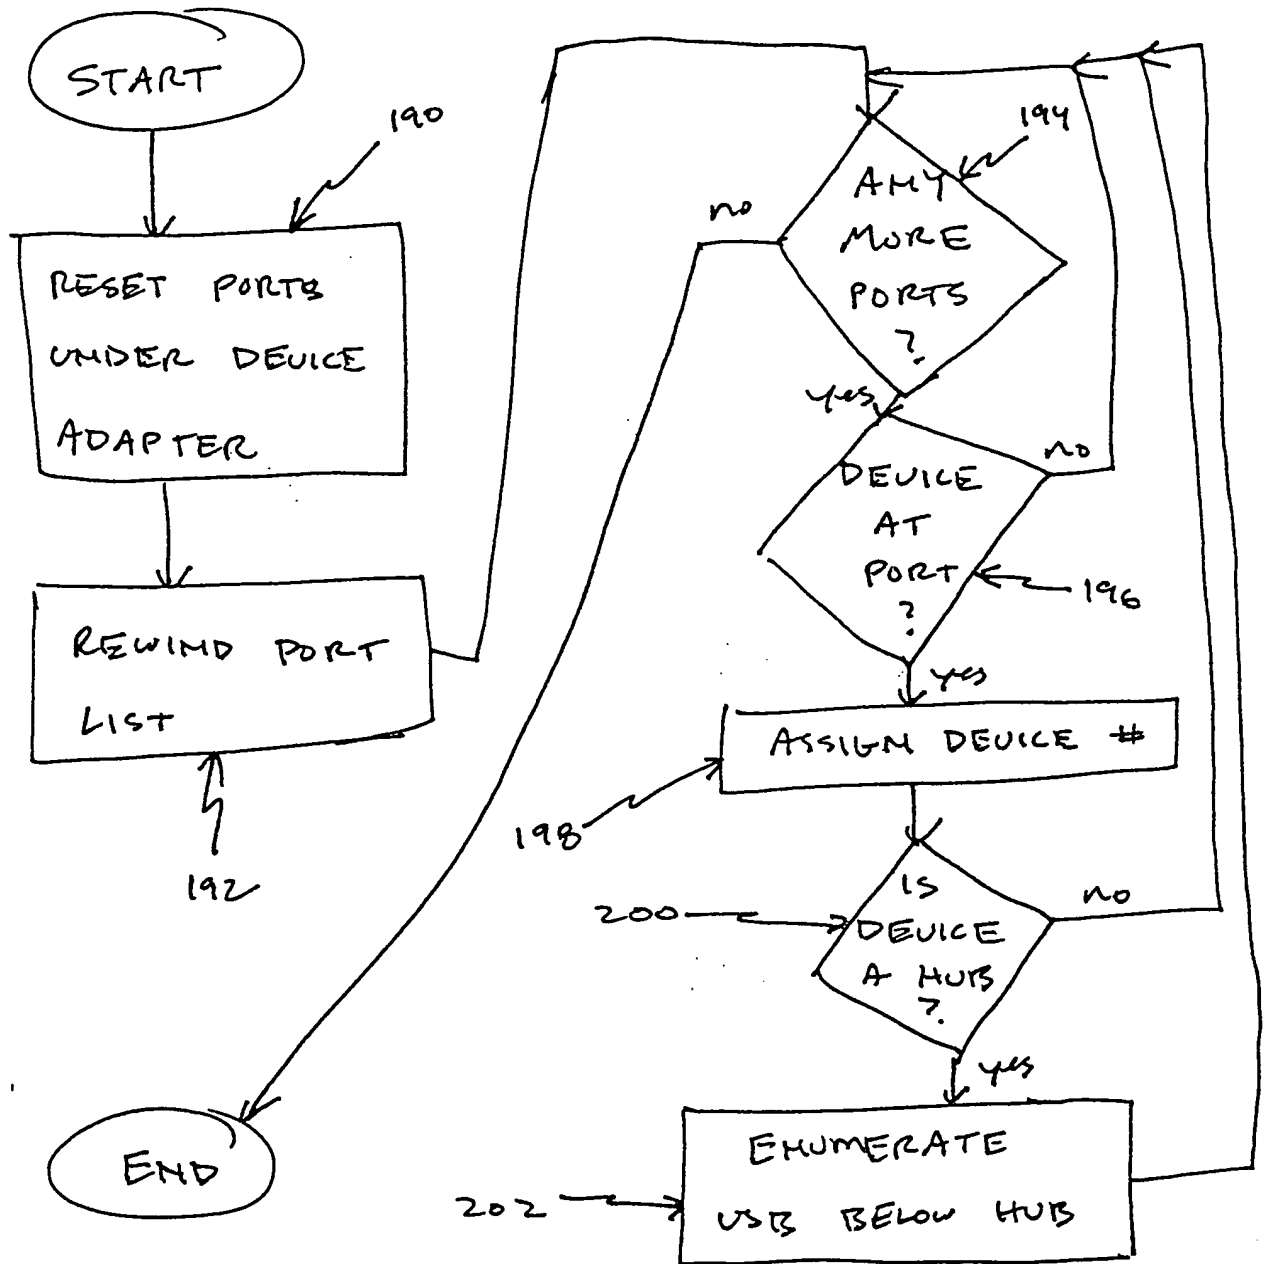 START
190
RESET PORTS
UNDER DEVICE
ADAPTER
REWIND PORT
LIST
192
194
ANY
MORE
PORTS
?
no
yes
DEVICE
AT
PORT
?
no
196
yes
ASSIGN DEVICE #
198
IS
DEVICE
A HUB
?
200
no
yes
ENUMERATE
USB BELOW HUB
202
END